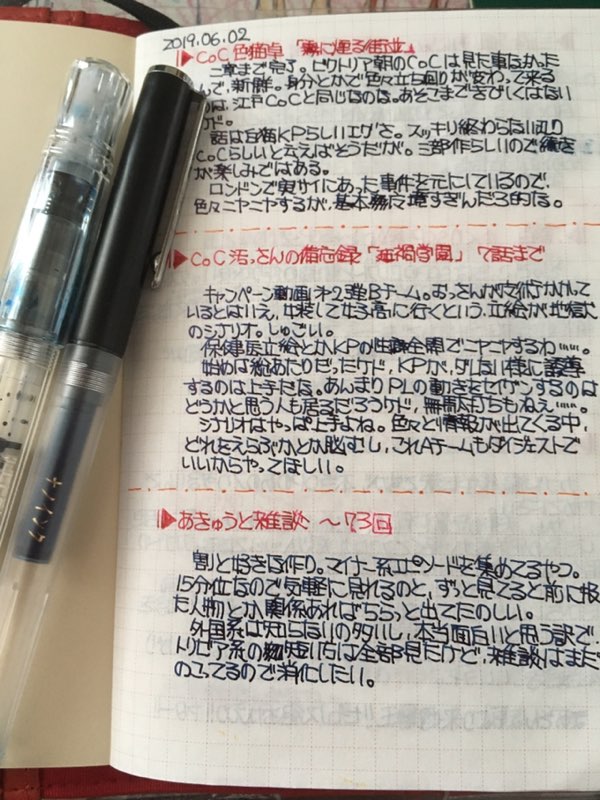 2019.06.02
▶CoC 色猫卓「霧に煙る街並」
二章まで完了。ビクトリア朝のCoCは見た事なかった
んで、新鮮。身分とかで色々立ち回りが変わって来る
のは、江戸CoCと同じなのな。あそこまできびしくはない
ケド。
話は白猫KPらしいエグさ。スッキリ終わらない辺り
CoCらしいと云えばそうだが。三部作らしいので続き
が楽しみではある。
ロンドンで実サイにあった事件を元にしているので、
色々ニヤニヤするが、基本霧に噎すぎんだろ的な。
▶CoC 活っさんの備忘録「亜禍学園」7話まで
キャンペーン動画オ2弾Bチーム。おっさんが交術かけて
いるとはいえ、女装して女子高に行くという、立絵が地獄
のシナリオ。しゅごい。
保健医立絵とかKPの性癖全開でニヤニヤするわwww。
始めは絵あたりだったケド、KPが、ダレない様に誘導
するのは上手だな。あんまりPLの動きをセイゲンするのは
どうかと思う人も居るだろうケド、無駄打ちもねぇwww。
シナリオはやっぱ上手よね。色々と情報が出てくる中、
どれをえらぶかとか脳すむし、これAチームもダイジェストで
いいからやってほしい。
▶あきゅうと雑談 ～73回
割と好きな作り。マイナー系エピソードを集めてるやつ。
15分位なので気軽に見れるのと、ずっと見てると前に扱っ
た人物とか、関係あればちらっと出てたのしい。
外国系は知らないの多いし、本当面白いと思う訳で、
トリビア系の短い方は全部見たけど、雑談はまだ
のこってるので消化したい。